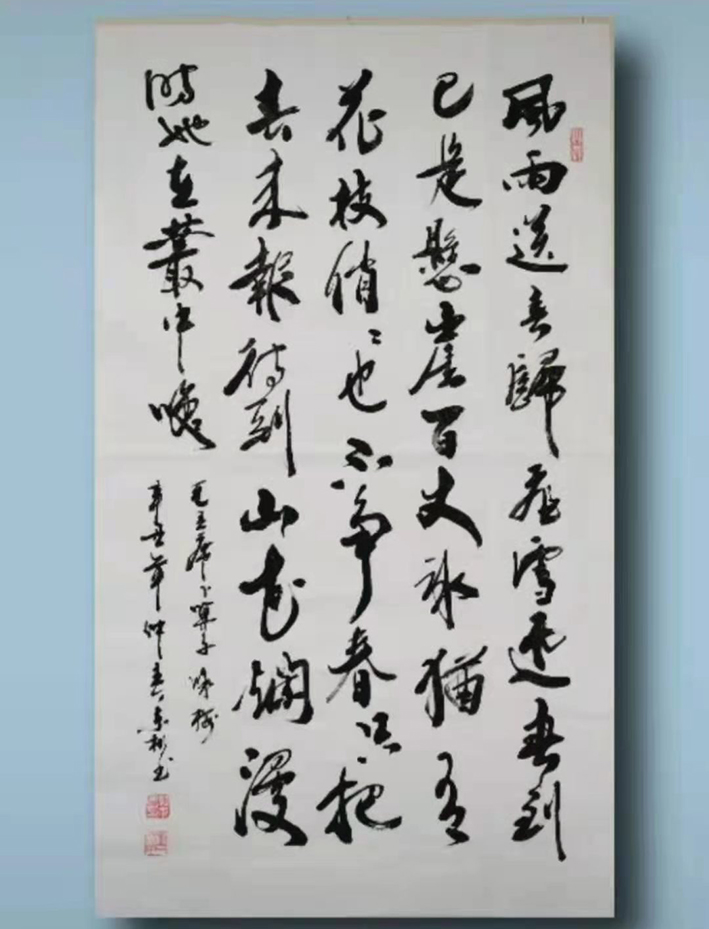 風雨送春歸飛雪迎春到
已是懸崖百丈冰猶有
花枝俏俏也不争春只把
春来報待到山花爛漫
時她在叢中唤
毛主席卜算子咏梅
辛丑年仲春 书